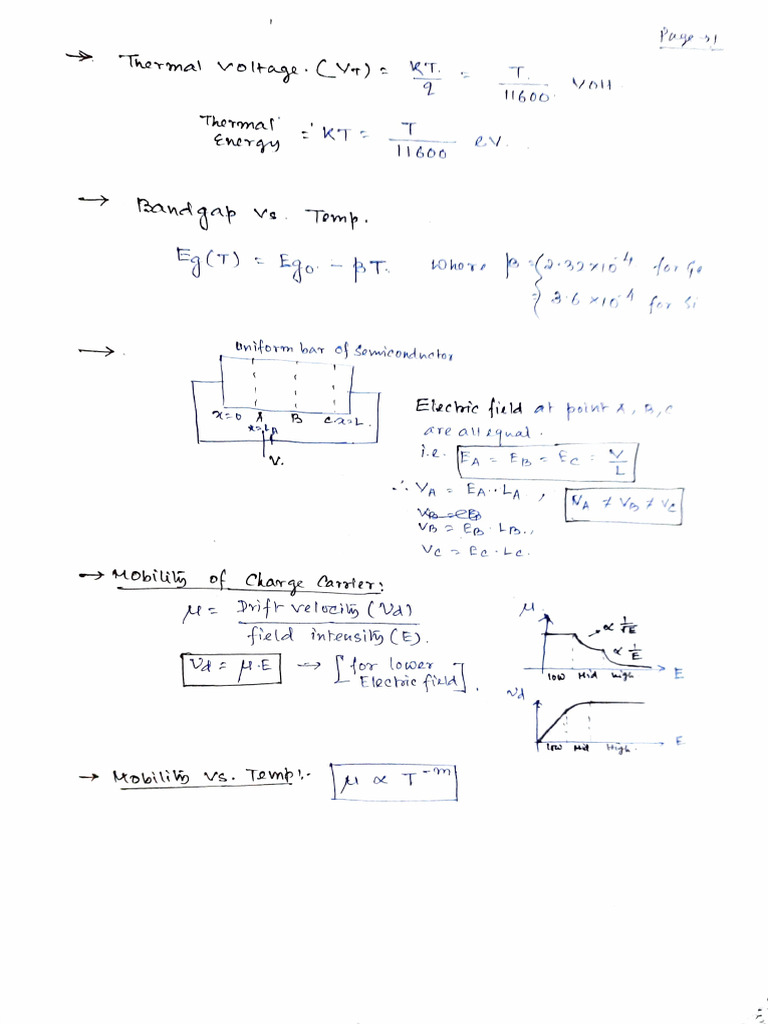 Page-21
→ Thermal voltage. (VT) = KT/q = T/11600 Volt.
Thermal Energy = KT = T/11600 eV.
→ Bandgap vs. Temp.
Eg(T) = Ego - βT. where β = { 2.32×10⁻⁴ for Ge
= 3.6×10⁻⁴ for Si
→ Uniform bar of Semiconductor
x=0 A B C x=L.
x=LA
V.
Electric field at point A, B, C
are all equal.
i.e. EA = EB = EC = V/L
∴ VA = EA·LA , VA ≠ VB ≠ VC
VB = EB · LB.,
VC = EC · LC.
→ Mobility of Charge Carrier:
μ = Drift velocity (Vd) / field intensity (E).
Vd = μ.E → [for lower Electric field].
μ ∝ 1/√E ∝ 1/E E
low Mid high
Vd E
low Mid High.
→ Mobility vs. Temp:- μ ∝ T⁻ᵐ